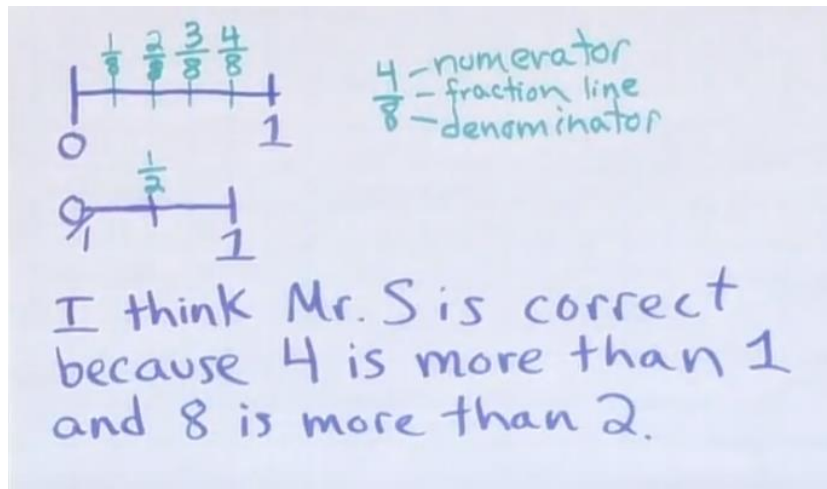 1/8 2/8 3/8 4/8
0 1
4/8 - numerator
- fraction line
- denominator
1/2
0/1 1
I think Mr. S is correct
because 4 is more than 1
and 8 is more than 2.